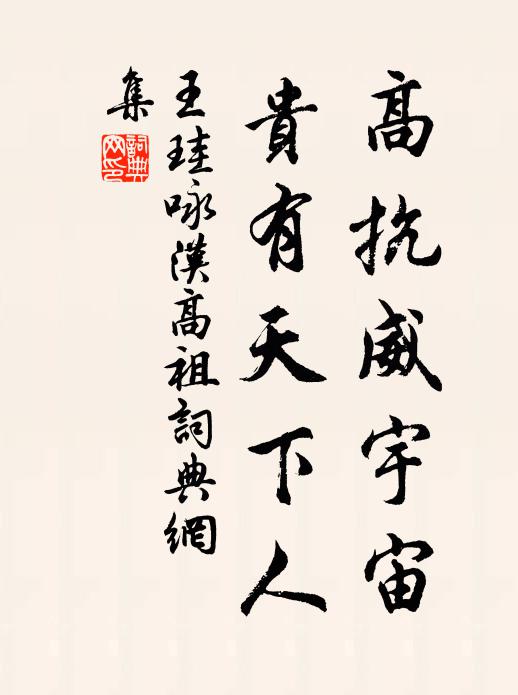 高抗威宇宙
貴有天下人
王珪咏漢高祖詞典網
集
詞典
网印